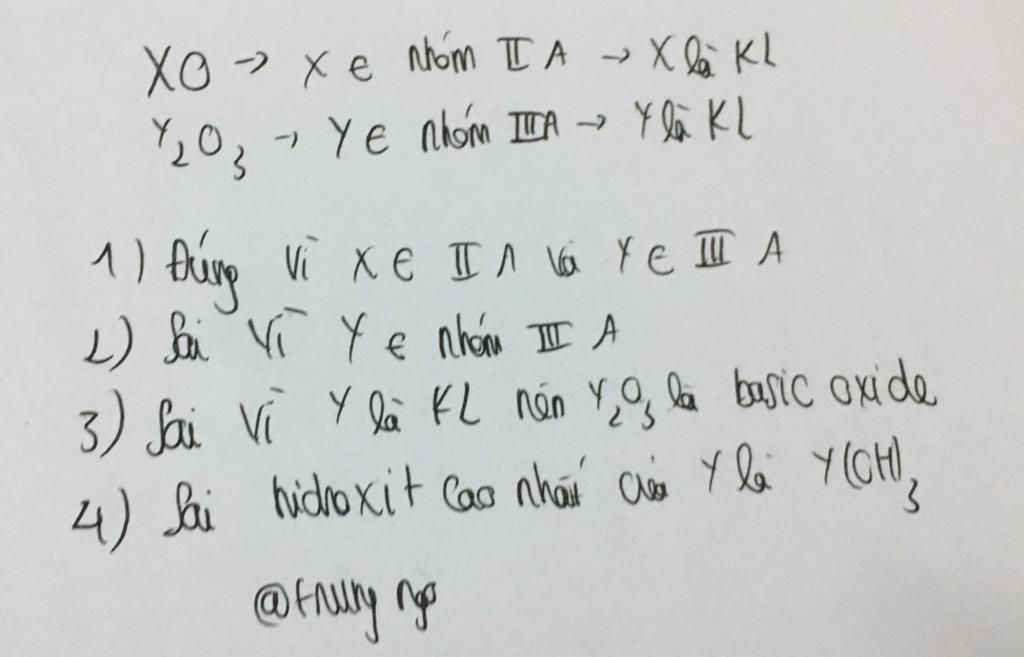 XO → X ∈ nhóm II A → X là KL
Y₂O₃ → Y ∈ nhóm IIIA → Y là KL
1) Đúng vì X ∈ II A và Y ∈ III A
2) Sai vì Y ∈ nhóm III A
3) Sai vì Y là KL nên Y₂O₃ là basic oxide
4) Sai hidroxit cao nhất của Y là Y(OH)₃
@trung ngo